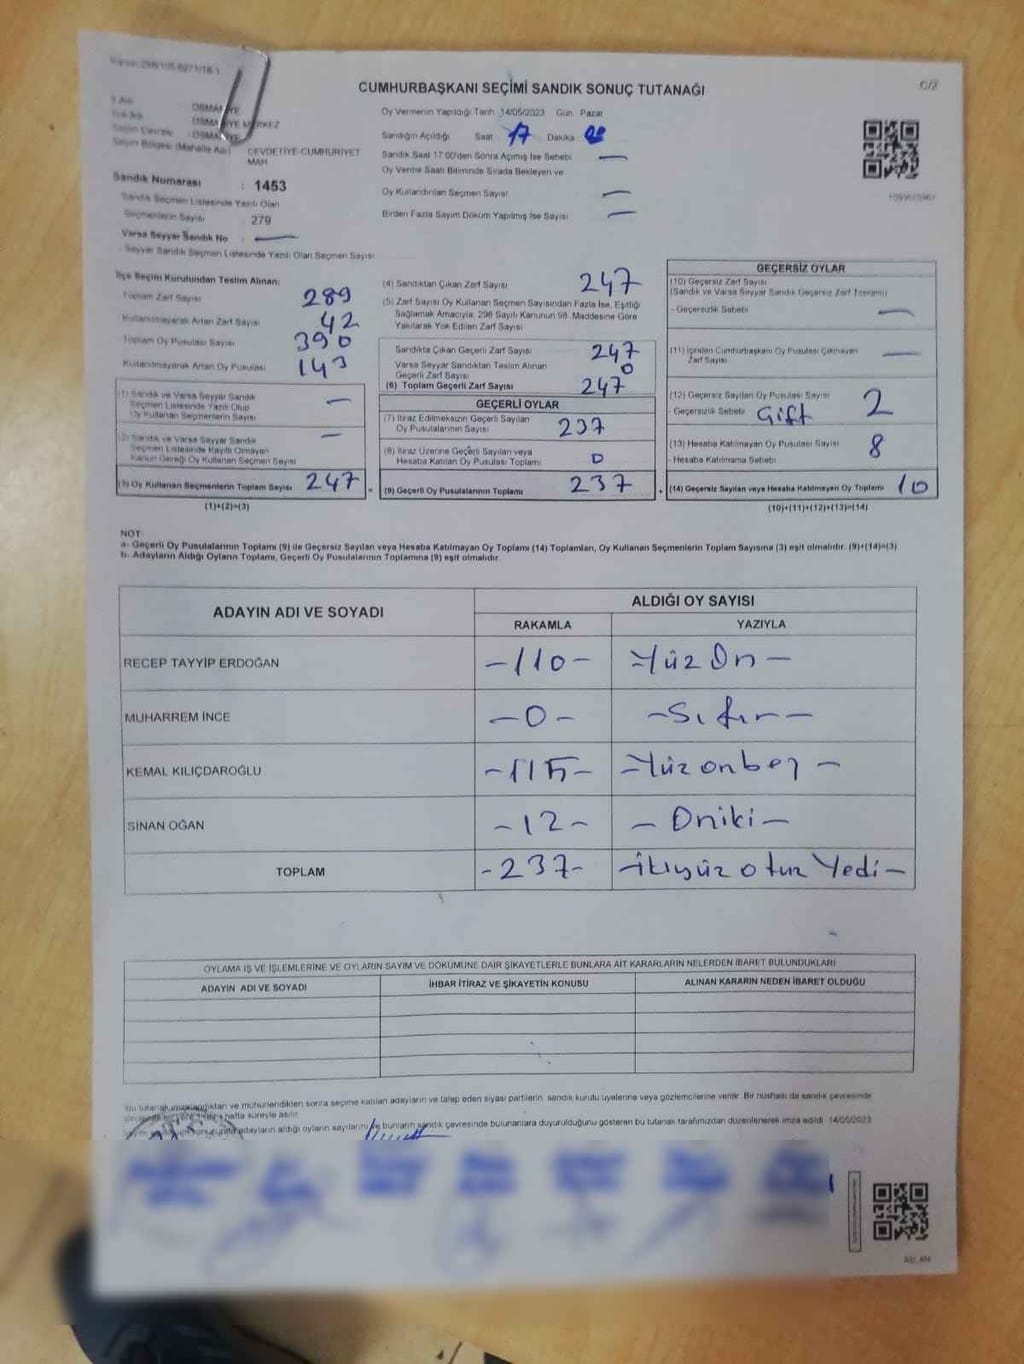 CUMHURBAŞKANI SEÇİMİ SANDIK SONUÇ TUTANAĞI
C/2
İl Adı : OSMANİYE
MERKEZ
Seçim Çevresi : OSMANİYE
Seçim Bölgesi (Mahalle Adı) : CEVDETİYE-CUMHURİYET MAH
Sandık Numarası : 1453
Sandık Seçmen Listesinde Yazılı Olan
Seçmenlerin Sayısı : 279
Varsa Seyyar Sandık No : —
Seyyar Sandık Seçmen Listesinde Yazılı Olan Seçmen Sayısı:
Oy Vermenin Yapıldığı Tarih 14/05/2023 Gün Pazar
Sandığın Açıldığı Saat 17 Dakika
Sandık Saat 17:00'den Sonra Açılmış İse Sebebi —
Oy Verme Saati Bitiminde Sırada Bekleyen ve
Oy Kullandırılan Seçmen Sayısı —
Birden Fazla Sayım Döküm Yapılmış İse Sayısı —
İlçe Seçim Kurulundan Teslim Alınan:
Toplam Zarf Sayısı 289
Kullanılmayarak Artan Zarf Sayısı 42
Toplam Oy Pusulası Sayısı 390
Kullanılmayarak Artan Oy Pusulası 143
(1) Sandık ve Varsa Seyyar Sandık
Seçmen Listesinde Yazılı Olup
Oy Kullanan Seçmenlerin Sayısı —
(2) Sandık ve Varsa Seyyar Sandık
Seçmen Listesinde Kayıtlı Olmayan
Kanun Gereği Oy Kullanan Seçmen Sayısı —
(3) Oy Kullanan Seçmenlerin Toplam Sayısı 247
(1)+(2)=(3)
(4) Sandıktan Çıkan Zarf Sayısı 247
(5) Zarf Sayısı Oy Kullanan Seçmen Sayısından Fazla İse, Eşitliği
Sağlamak Amacıyla, 298 Sayılı Kanunun 98. Maddesine Göre
Yakılarak Yok Edilen Zarf Sayısı
Sandıkta Çıkan Geçerli Zarf Sayısı 247
Varsa Seyyar Sandıktan Teslim Alınan
Geçerli Zarf Sayısı 0
(6) Toplam Geçerli Zarf Sayısı 247
GEÇERLİ OYLAR
(7) İtiraz Edilmeksizin Geçerli Sayılan
Oy Pusulalarının Sayısı 237
(8) İtiraz Üzerine Geçerli Sayılan veya
Hesaba Katılan Oy Pusulası Toplamı 0
(9) Geçerli Oy Pusulalarının Toplamı 237
GEÇERSİZ OYLAR
(10) Geçersiz Zarf Sayısı
(Sandık ve Varsa Seyyar Sandık Geçersiz Zarf Toplamı)
- Geçersizlik Sebebi —
(11) İçinden Cumhurbaşkanı Oy Pusulası Çıkmayan
Zarf Sayısı —
(12) Geçersiz Sayılan Oy Pusulası Sayısı 2
Geçersizlik Sebebi Gift
(13) Hesaba Katılmayan Oy Pusulası Sayısı 8
- Hesaba Katılmama Sebebi
(14) Geçersiz Sayılan veya Hesaba Katılmayan Oy Toplamı 10
(10)+(11)+(12)+(13)=(14)
NOT:
a- Geçerli Oy Pusulalarının Toplamı (9) ile Geçersiz Sayılan veya Hesaba Katılmayan Oy Toplamı (14) Toplamları, Oy Kullanan Seçmenlerin Toplam Sayısına (3) eşit olmalıdır. (9)+(14)=(3)
b- Adayların Aldığı Oyların Toplamı, Geçerli Oy Pusulalarının Toplamına (9) eşit olmalıdır.
ADAYIN ADI VE SOYADI
ALDIĞI OY SAYISI
RAKAMLA YAZIYLA
RECEP TAYYİP ERDOĞAN -110- -Yüz On-
MUHARREM İNCE -0- -Sıfır-
KEMAL KILIÇDAROĞLU -115- -Yüz onbeş-
SİNAN OĞAN -12- -Oniki-
TOPLAM -237- -ikiyüz otuz Yedi-
OYLAMA İŞ VE İŞLEMLERİNE VE OYLARIN SAYIM VE DÖKÜMÜNE DAİR ŞİKAYETLERLE BUNLARA AİT KARARLARIN NELERDEN İBARET BULUNDUKLARI
ADAYIN ADI VE SOYADI İHBAR İTİRAZ VE ŞİKAYETİN KONUSU ALINAN KARARIN NEDEN İBARET OLDUĞU
Bu tutanak imzalandıktan ve mühürlendikten sonra seçime katılan adayların ve talep eden siyasi partilerin sandık kurulu üyelerine veya gözlemcilerine verilir. Bir nüshası da sandık çevresinde
hafta süreyle asılır.
adayların aldığı oyların sayılarını ve bunların sandık çevresinde bulunanlara duyurulduğunu gösteren bu tutanak tarafımızdan düzenlenerek imza edildi. 14/05/2023